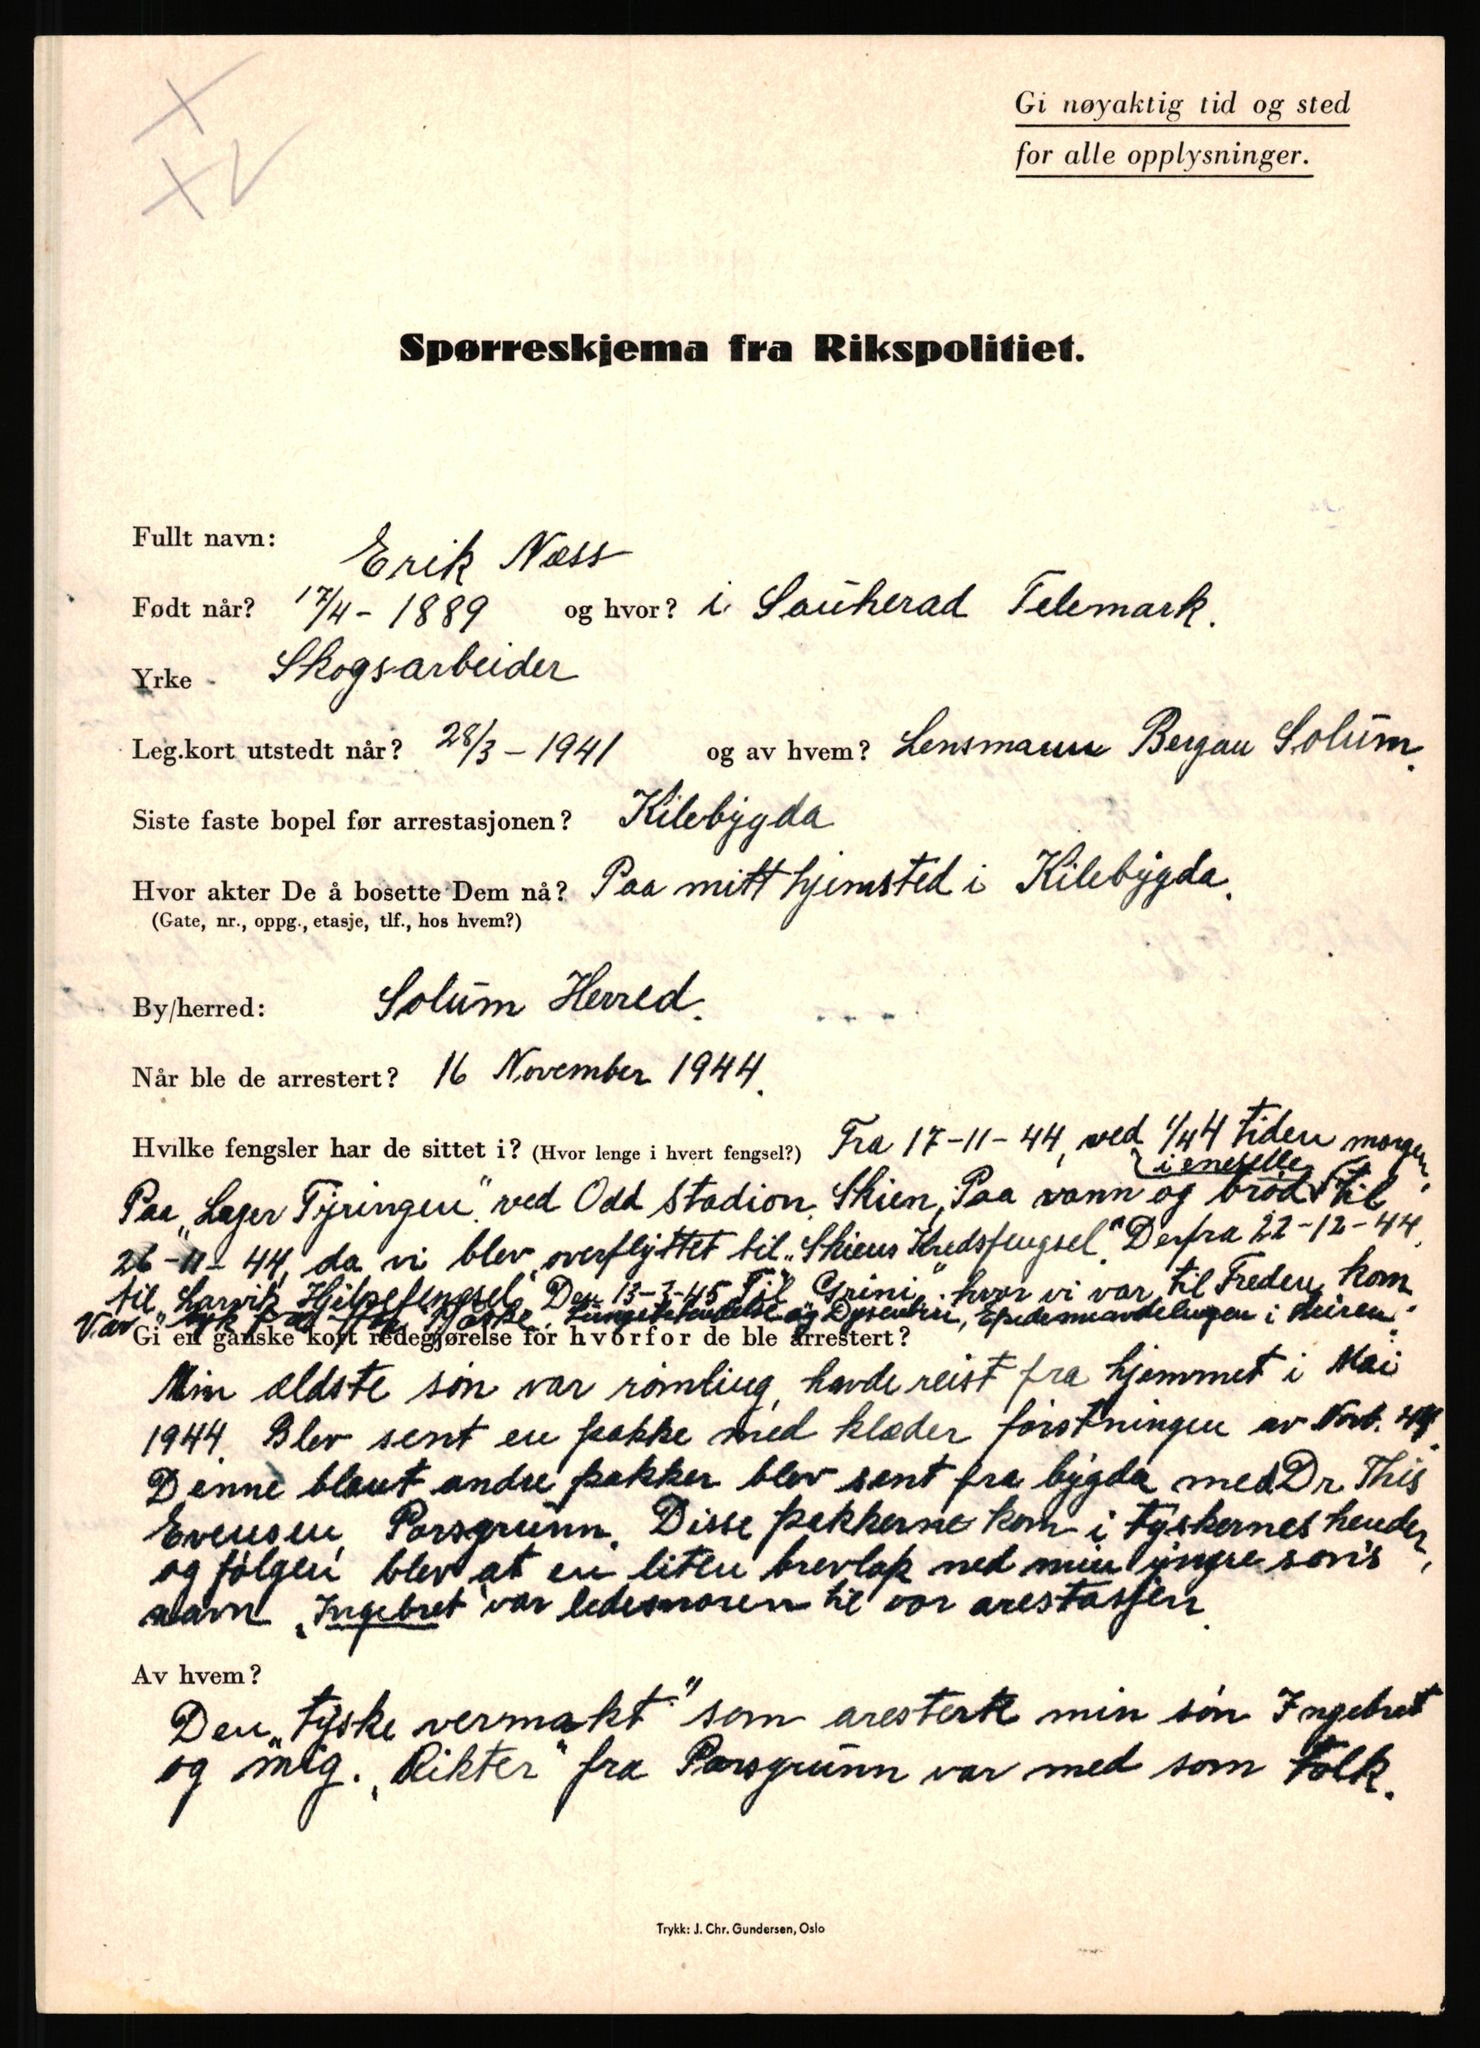 Gi nøyaktig tid og sted
for alle opplysninger.
Spørreskjema fra Rikspolitiet.
Fullt navn: Erik Næss
Født når? 17/4 - 1889 og hvor? i Sauherad Telemark.
Yrke Skogsarbeider
Leg.kort utstedt når? 28/3 - 1941 og av hvem? Lensmann Bergan Solum.
Siste faste bopel før arrestasjonen? Kilebygda
Hvor akter De å bosette Dem nå? Paa mitt hjemsted i Kilebygda.
(Gate, nr., oppg., etasje, tlf., hos hvem?)
By/herred: Solum Herred.
Når ble de arrestert? 16 November 1944.
Hvilke fengsler har de sittet i? (Hvor lenge i hvert fengsel?) Fra 17-11-44, ved 1/4 4 tiden morgen,
i enecelle
Paa „Lager Tyringen" ved Odd stadion, Skien, Paa vann og brød til
26-11-44, da vi blev overflyttet til „Skiens Kredsfengsel." Derfra 22-12-44
til „Larvik Hjelpefengsel" Den 13-3-45 Til „Grini" hvor vi var til Freden kom
Var syk Lungebetendelse og Dysentri, i leiren.
Gi en ganske kort redegjørelse for hvorfor de ble arrestert?
Min ældste søn var rømling, havde reist fra hjemmet i Mai
1944. Blev sent en pakke med klæder førstningen av Novb. 44.
Denne blant andre pakker blev sent fra bygda med Dr. This
Evensen, Porsgrunn. Disse pakkerne kom i tyskernes hender,
og følgen blev at en liten brevlap med min yngre søn's
navn „Ingebret" var ledesnoren til vor arestasjen.
Av hvem?
Den „tyske vermakt" som aresterte min søn Ingebret
og mig. „Rikter" fra Porsgrunn var med som tolk.
Trykk: J. Chr. Gundersen, Oslo